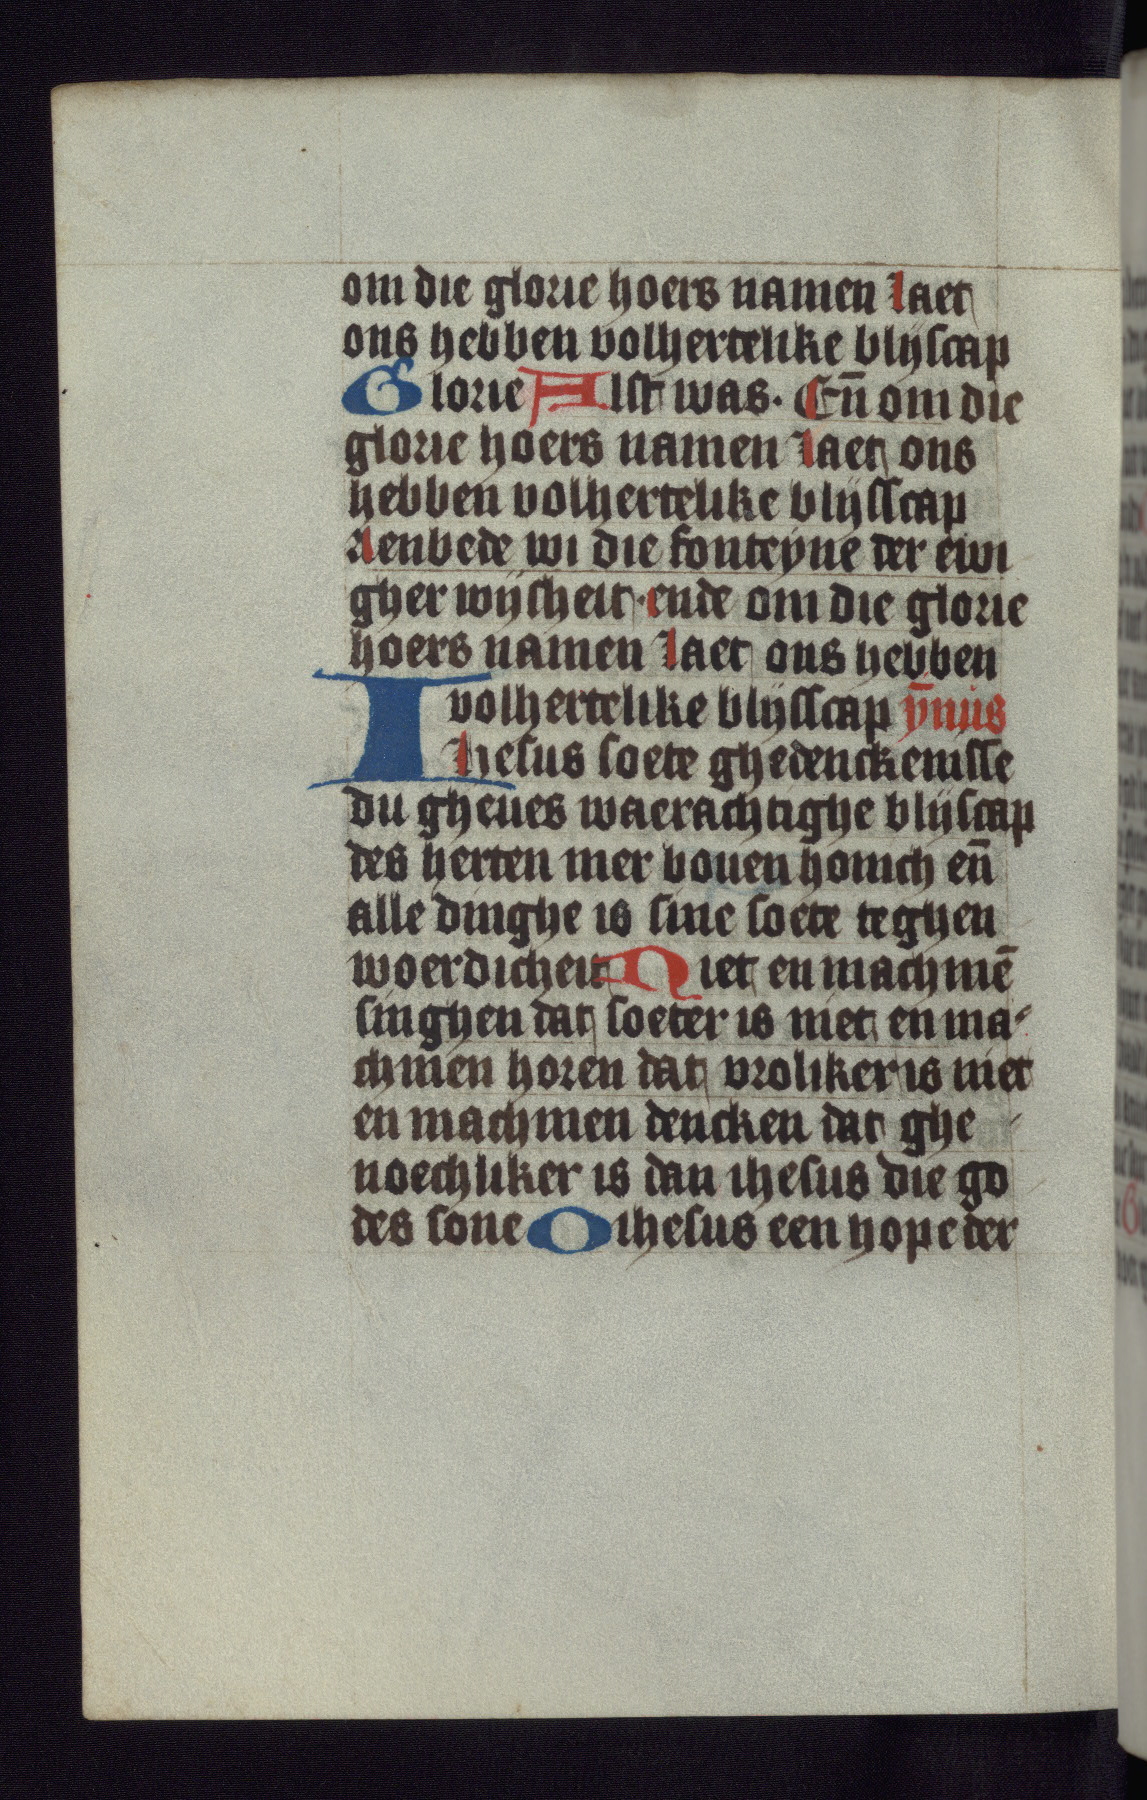 om die glorie hoers namen laet
ons hebben volhertelike blijscap
Glorie Alst was. En̄ om die
glorie hoers namen laet ons
hebben volhertelike blijsscap
Aenbede wi die fonteyne der ewi
gher wijsheit · ende om die glorie
hoers namen laet ons hebben
volhertelike blijsscap ȳnus
Ihesus soete ghedenckenisse
du gheues waerachtighe blijscap
des herten mer bouen honich en̄
alle dinghe is sine soete teghen
woerdicheit Niet en machmē
singhen dat soeter is niet en ma-
chmen horen dat vroliker is niet
en machmen dencken dat ghe
noechliker is dan ihesus die go
des sone O ihesus een hope der